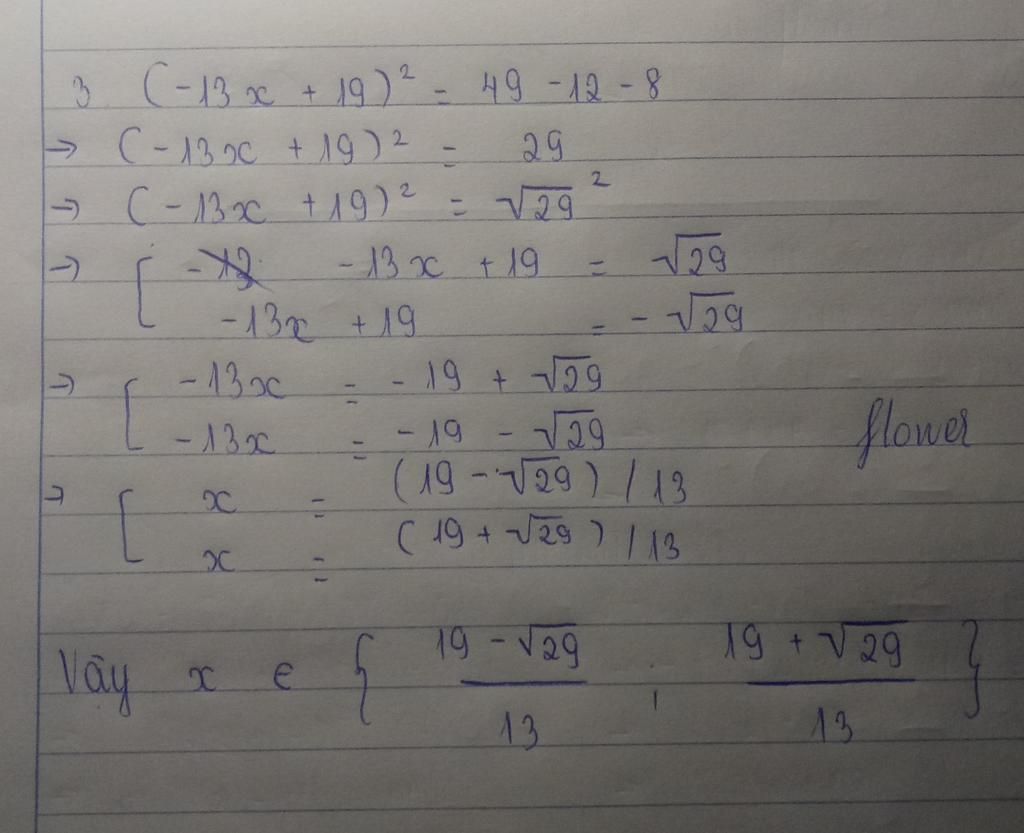 3 (-13x + 19)² = 49 - 12 - 8
→ (-13x + 19)² = 29
→ (-13x + 19)² = √29²
→ [ -13x + 19 = √29
-13x + 19 = - √29
→ [ -13x = -19 + √29
-13x = -19 - √29
flower
→ [ x = (19 - √29) / 13
x = (19 + √29) / 13
Vậy x ∈ { (19 - √29)/13 , (19 + √29)/13 }